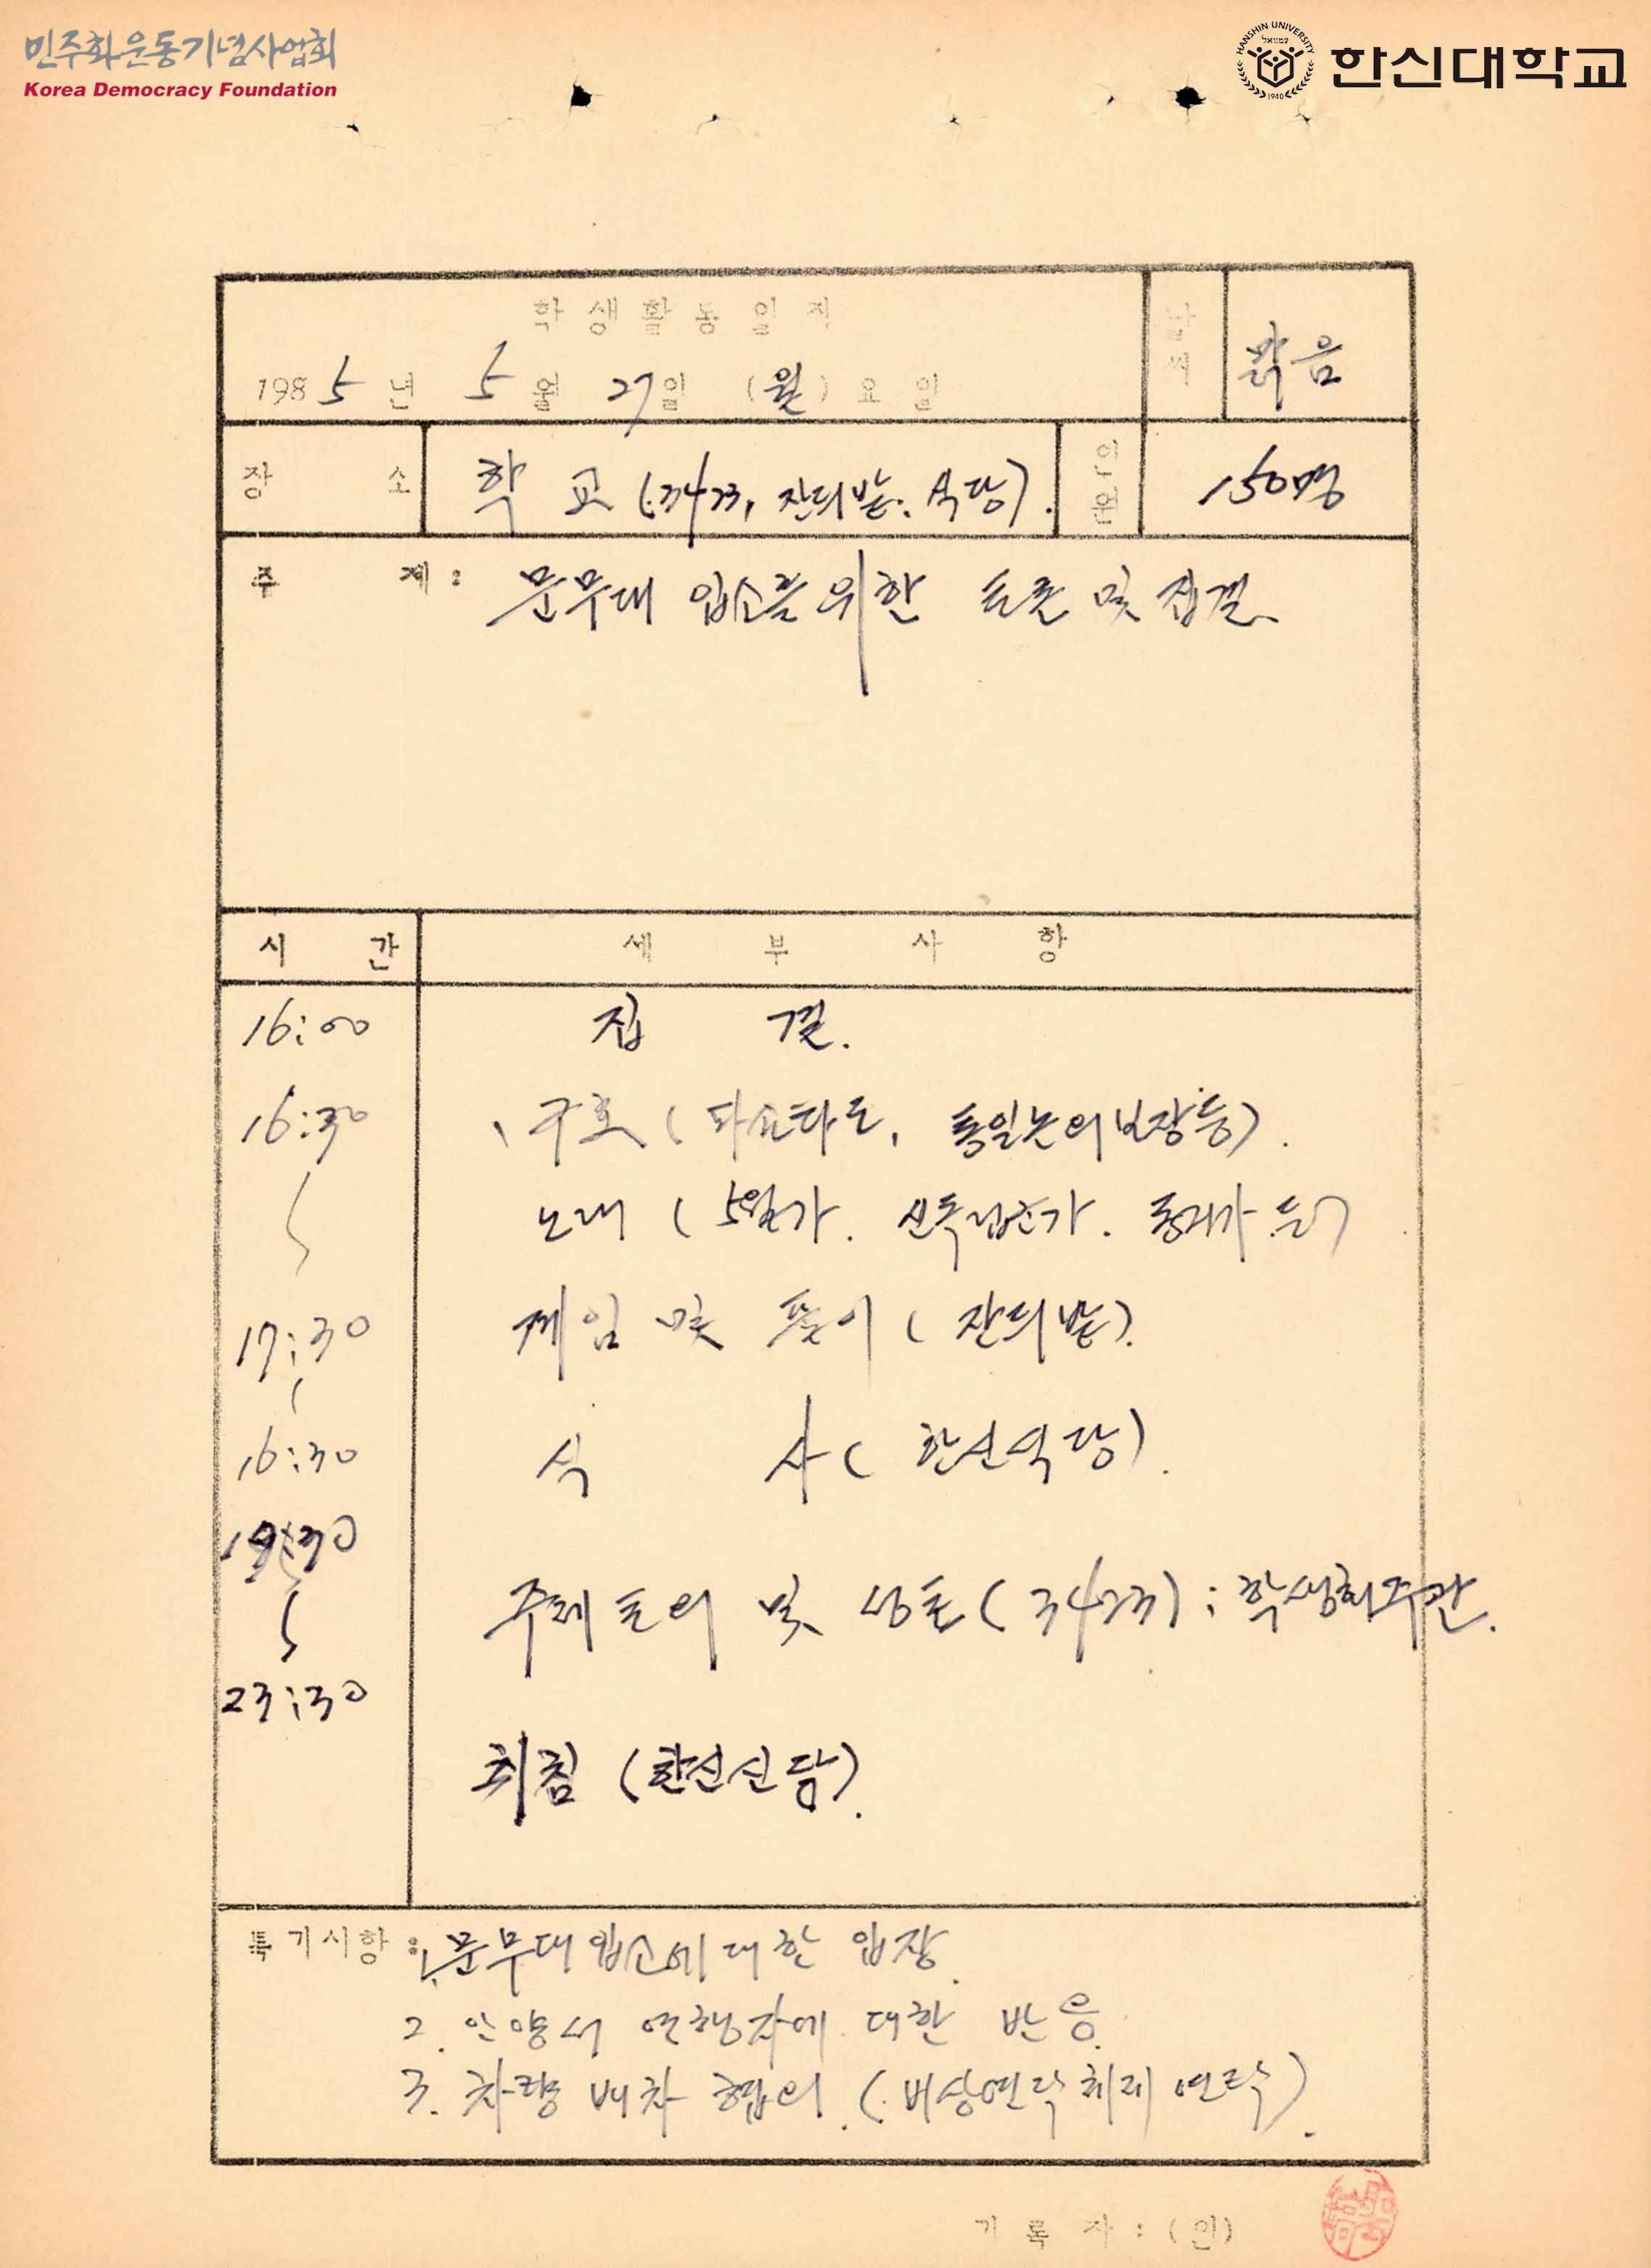 민주화운동기념사업회
Korea Democracy Foundation
HANSHIN UNIVERSITY
1940
한신대학교
학생활동일지
1985년 5월 27일 (월)요일
날씨
맑음
장소
학교 (3423, 잔듸밭. 식당).
인원
150명
주제: 문무대 입소를 위한 토론 및 집결.
시간
세부사항
16:00
집결.
16:30
구호 ( 타도, 통일논의보장등).
노래 ( 5월가. 신독립군가. 등)
17:30
게임 및 풀이 ( 잔듸밭).
16:30
식사 ( 한신식당).
19:30
주제토의 및 성토 (3423) : 학생회주관.
23:30
취침 (한신신당).
특기사항 : 1. 문무대입소에 대한 입장.
2. 안양서 연행자에 대한 반응.
3. 차량 배차 협의. (비상연락체제 연락).
기록자 : (인)